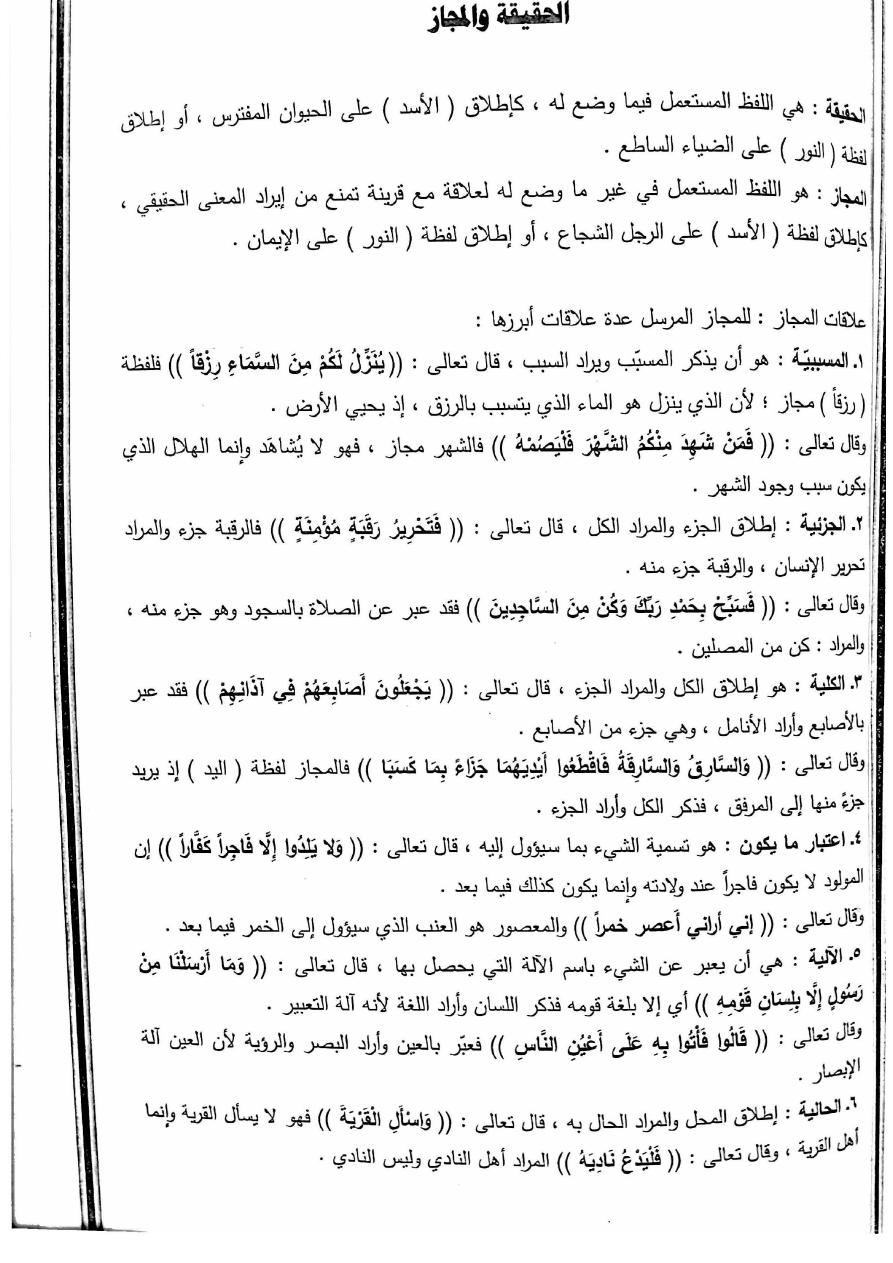 الحقيقة والمجاز
الحقيقة : هي اللفظ المستعمل فيما وضع له ، كإطلاق ( الأسد ) على الحيوان المفترس ، أو إطلاق
لفظة ( النور ) على الضياء الساطع .
المجاز : هو اللفظ المستعمل في غير ما وضع له لعلاقة مع قرينة تمنع من إيراد المعنى الحقيقي ،
كإطلاق لفظة ( الأسد ) على الرجل الشجاع ، أو إطلاق لفظة ( النور ) على الإيمان .
علاقات المجاز : للمجاز المرسل عدة علاقات أبرزها :
١. المسببيّة : هو أن يذكر المسبّب ويراد السبب ، قال تعالى : (( يُنَزِّلُ لَكُمْ مِنَ السَّمَاءِ رِزْقاً )) فلفظة
( رزقاً ) مجاز ؛ لأن الذي ينزل هو الماء الذي يتسبب بالرزق ، إذ يحيي الأرض .
وقال تعالى : (( فَمَنْ شَهِدَ مِنْكُمُ الشَّهْرَ فَلْيَصُمْهُ )) فالشهر مجاز ، فهو لا يُشاهَد وإنما الهلال الذي
يكون سبب وجود الشهر .
٢. الجزئية : إطلاق الجزء والمراد الكل ، قال تعالى : (( فَتَحْرِيرُ رَقَبَةٍ مُؤْمِنَةٍ )) فالرقبة جزء والمراد
تحرير الإنسان ، والرقبة جزء منه .
وقال تعالى : (( فَسَبِّحْ بِحَمْدِ رَبِّكَ وَكُنْ مِنَ السَّاجِدِينَ )) فقد عبر عن الصلاة بالسجود وهو جزء منه ،
والمراد : كن من المصلين .
٣. الكلية : هو إطلاق الكل والمراد الجزء ، قال تعالى : (( يَجْعَلُونَ أَصَابِعَهُمْ فِي آذَانِهِمْ )) فقد عبر
بالأصابع وأراد الأنامل ، وهي جزء من الأصابع .
وقال تعالى : (( وَالسَّارِقُ وَالسَّارِقَةُ فَاقْطَعُوا أَيْدِيَهُمَا جَزَاءً بِمَا كَسَبَا )) فالمجاز لفظة ( اليد ) إذ يريد
جزءً منها إلى المرفق ، فذكر الكل وأراد الجزء .
٤. اعتبار ما يكون : هو تسمية الشيء بما سيؤول إليه ، قال تعالى : (( وَلا يَلِدُوا إِلَّا فَاجِراً كَفَّاراً )) إن
المولود لا يكون فاجراً عند ولادته وإنما يكون كذلك فيما بعد .
وقال تعالى : (( إني أراني أعصر خمراً )) والمعصور هو العنب الذي سيؤول إلى الخمر فيما بعد .
٥. الآلية : هي أن يعبر عن الشيء باسم الآلة التي يحصل بها ، قال تعالى : (( وَمَا أَرْسَلْنَا مِنْ
رَسُولٍ إِلَّا بِلِسَانِ قَوْمِهِ )) أي إلا بلغة قومه فذكر اللسان وأراد اللغة لأنه آلة التعبير .
وقال تعالى : (( قَالُوا فَأْتُوا بِهِ عَلَى أَعْيُنِ النَّاسِ )) فعبّر بالعين وأراد البصر والرؤية لأن العين آلة
الإبصار .
٦. الحالية : إطلاق المحل والمراد الحال به ، قال تعالى : (( وَاسْأَلِ الْقَرْيَةَ )) فهو لا يسأل القرية وإنما
أهل القرية ، وقال تعالى : (( فَلْيَدْعُ نَادِيَهُ )) المراد أهل النادي وليس النادي .